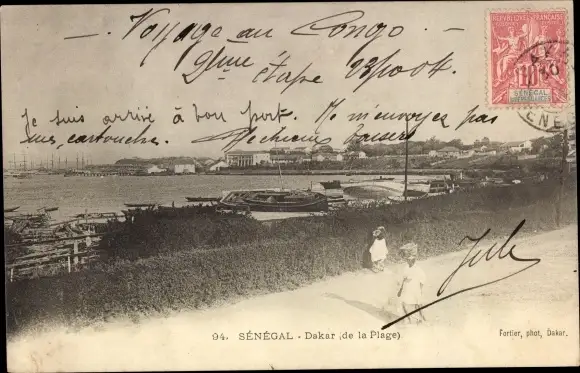 — Voyage au Congo. —
2ème étape 23 Août 04.
Je suis arrivé à bon port. Ne m'envoyez pas
mes cartouches. Baisers
RÉPUBLIQUE FRANÇAISE
10
SÉNÉGAL
ET DÉPENDANCES
Jules
94. SÉNÉGAL - Dakar (de la Plage)
Fortier, phot, Dakar.